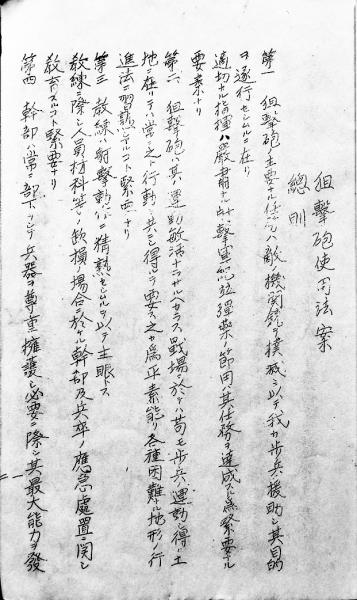 狙擊砲使用法案
總則
第一 狙擊砲ノ主要ナル任務ハ敵ノ機関銃ヲ撲滅シ以テ我カ歩兵ヲ援助シ其目的
ヲ遂行セシムルニ在リ
適切ナル指揮ハ嚴肅ナル射擊軍紀竝彈藥ノ節用ハ其任務ヲ達成スル為緊要ナル
要素ナリ
第二 狙擊砲ハ其ノ運動敏活ナラサルヘカラス戰場ニ於テハ苟モ歩兵ノ運動シ得ル土
地ニ在リテハ常ニ之ト行動ヲ共ニシ得ルヲ要ス之カ為平素能ク各種困難ナル地形ノ行
進法ニ習熟スルコト緊要ナリ
第三 教練ハ射擊動作ニ精熟セシムルヲ以テ主眼トス
教練ニ際シ人員材料等ノ欽損ノ場合ニ於ケル幹部及兵卒ノ應急處置ニ関シ
教育スルコト緊要ナリ
第四 幹部ハ常ニ部下ヲシテ兵器ヲ尊重擁護シ必要ニ際シ其最大能力ヲ發